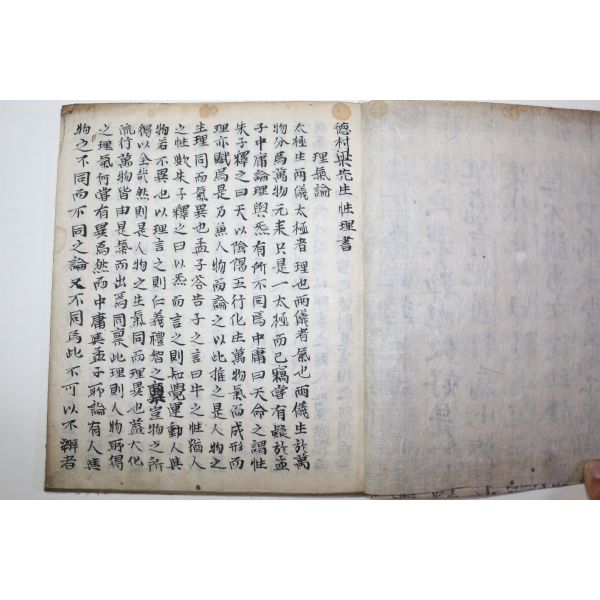 德村梁先生性理書
理氣論
太極生兩儀太極者理也兩儀者氣也兩儀生於萬
物分爲萬物元来只是一太極而已竊嘗有疑於孟
子中庸論理與炁有所不同焉中庸曰天命之謂性
朱子釋之曰天以陰陽五行化生萬物氣而成形而
理亦賦焉是乃兼人物而論之以此推之是人物之
生理同而氣異也孟子答告子之言曰牛之性猶人
之性歟朱子釋之曰以炁而言之則知覺運動人與
物若不異也以理言之則仁義禮智之稟豈物之所
得以全哉然則是人物之生氣同而理異也盖大化
流行萬物皆由是氣而出焉同稟此理則人物所得
之理氣何嘗有異焉然而中庸與孟子所論有人與
物之不同而不同之論又不同焉此不可以不辨者